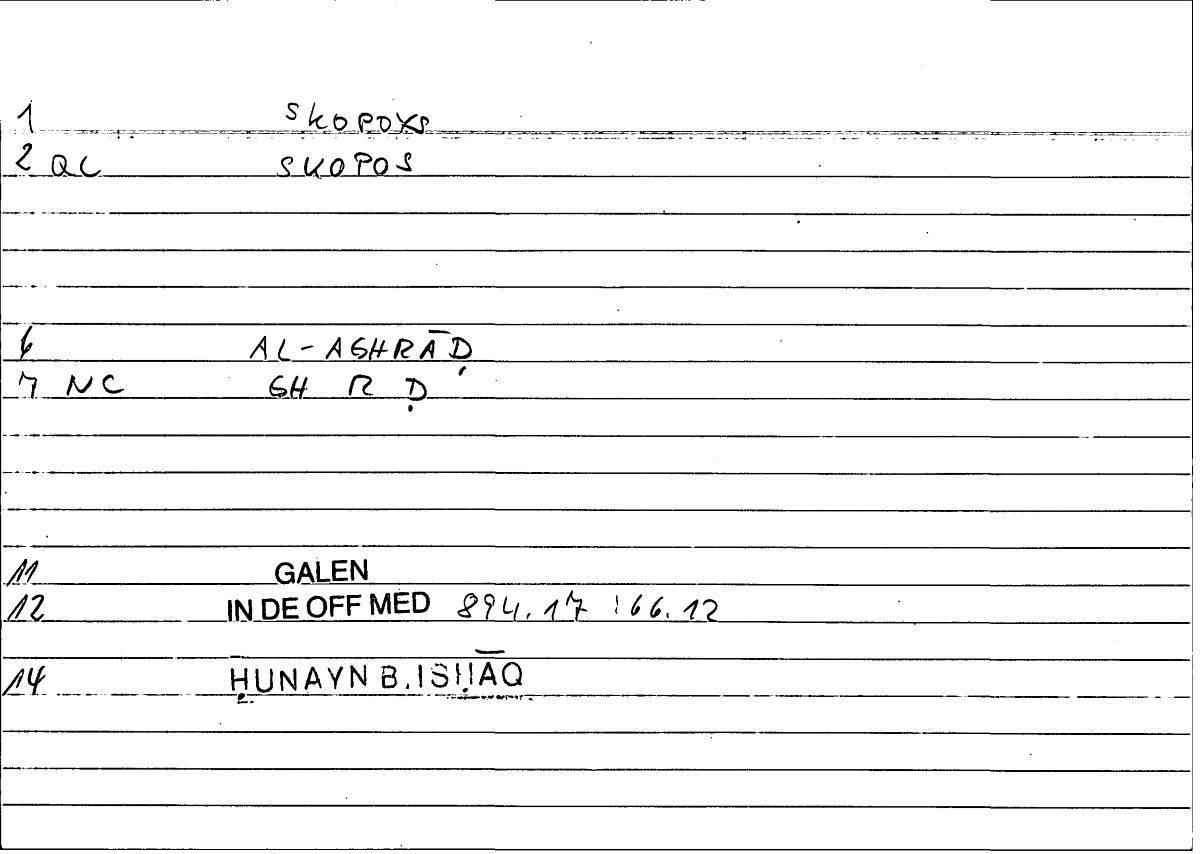 1 SKOPOXS
2 QC SKOPOS
6 AL-AGHRĀḌ
7 NC GH R Ḍ
11 GALEN
12 IN DE OFF MED 894.17 :66.12
14 ḤUNAYN B. ISḤĀQ